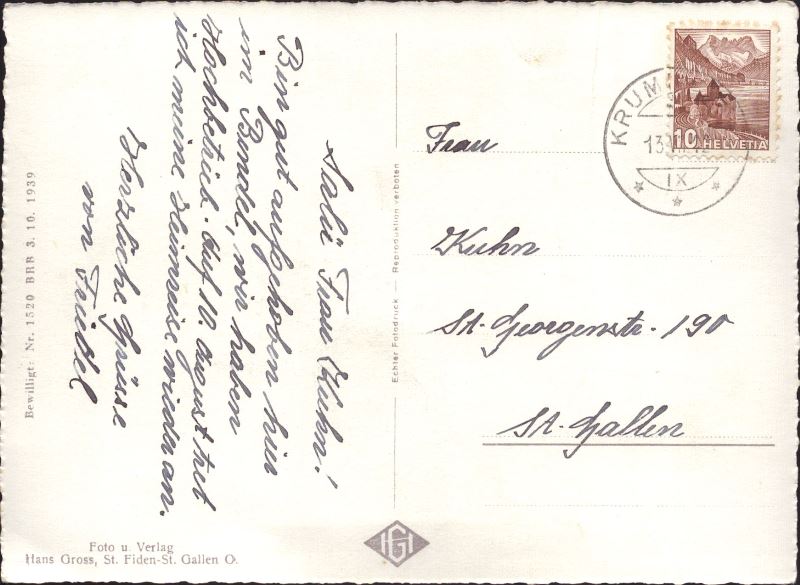 Salü Frau Kuhn!
Bin gut aufgehoben hier
im Bündel, wir haben
Hochbetrieb. Auf 10. August tret
ich meine Heimreise wieder an.
Herzliche Grüsse
von Friedel
Bewilligt: Nr. 1520 BRB 3. 10. 1939
Foto u. Verlag
Hans Gross, St. Fiden-St. Gallen O.
Echter Fotodruck — Reproduktion verboten
HG
KRUM
13
IX
10 HELVETIA
Frau
Kuhn
St. Georgenstr. 190
St. Gallen